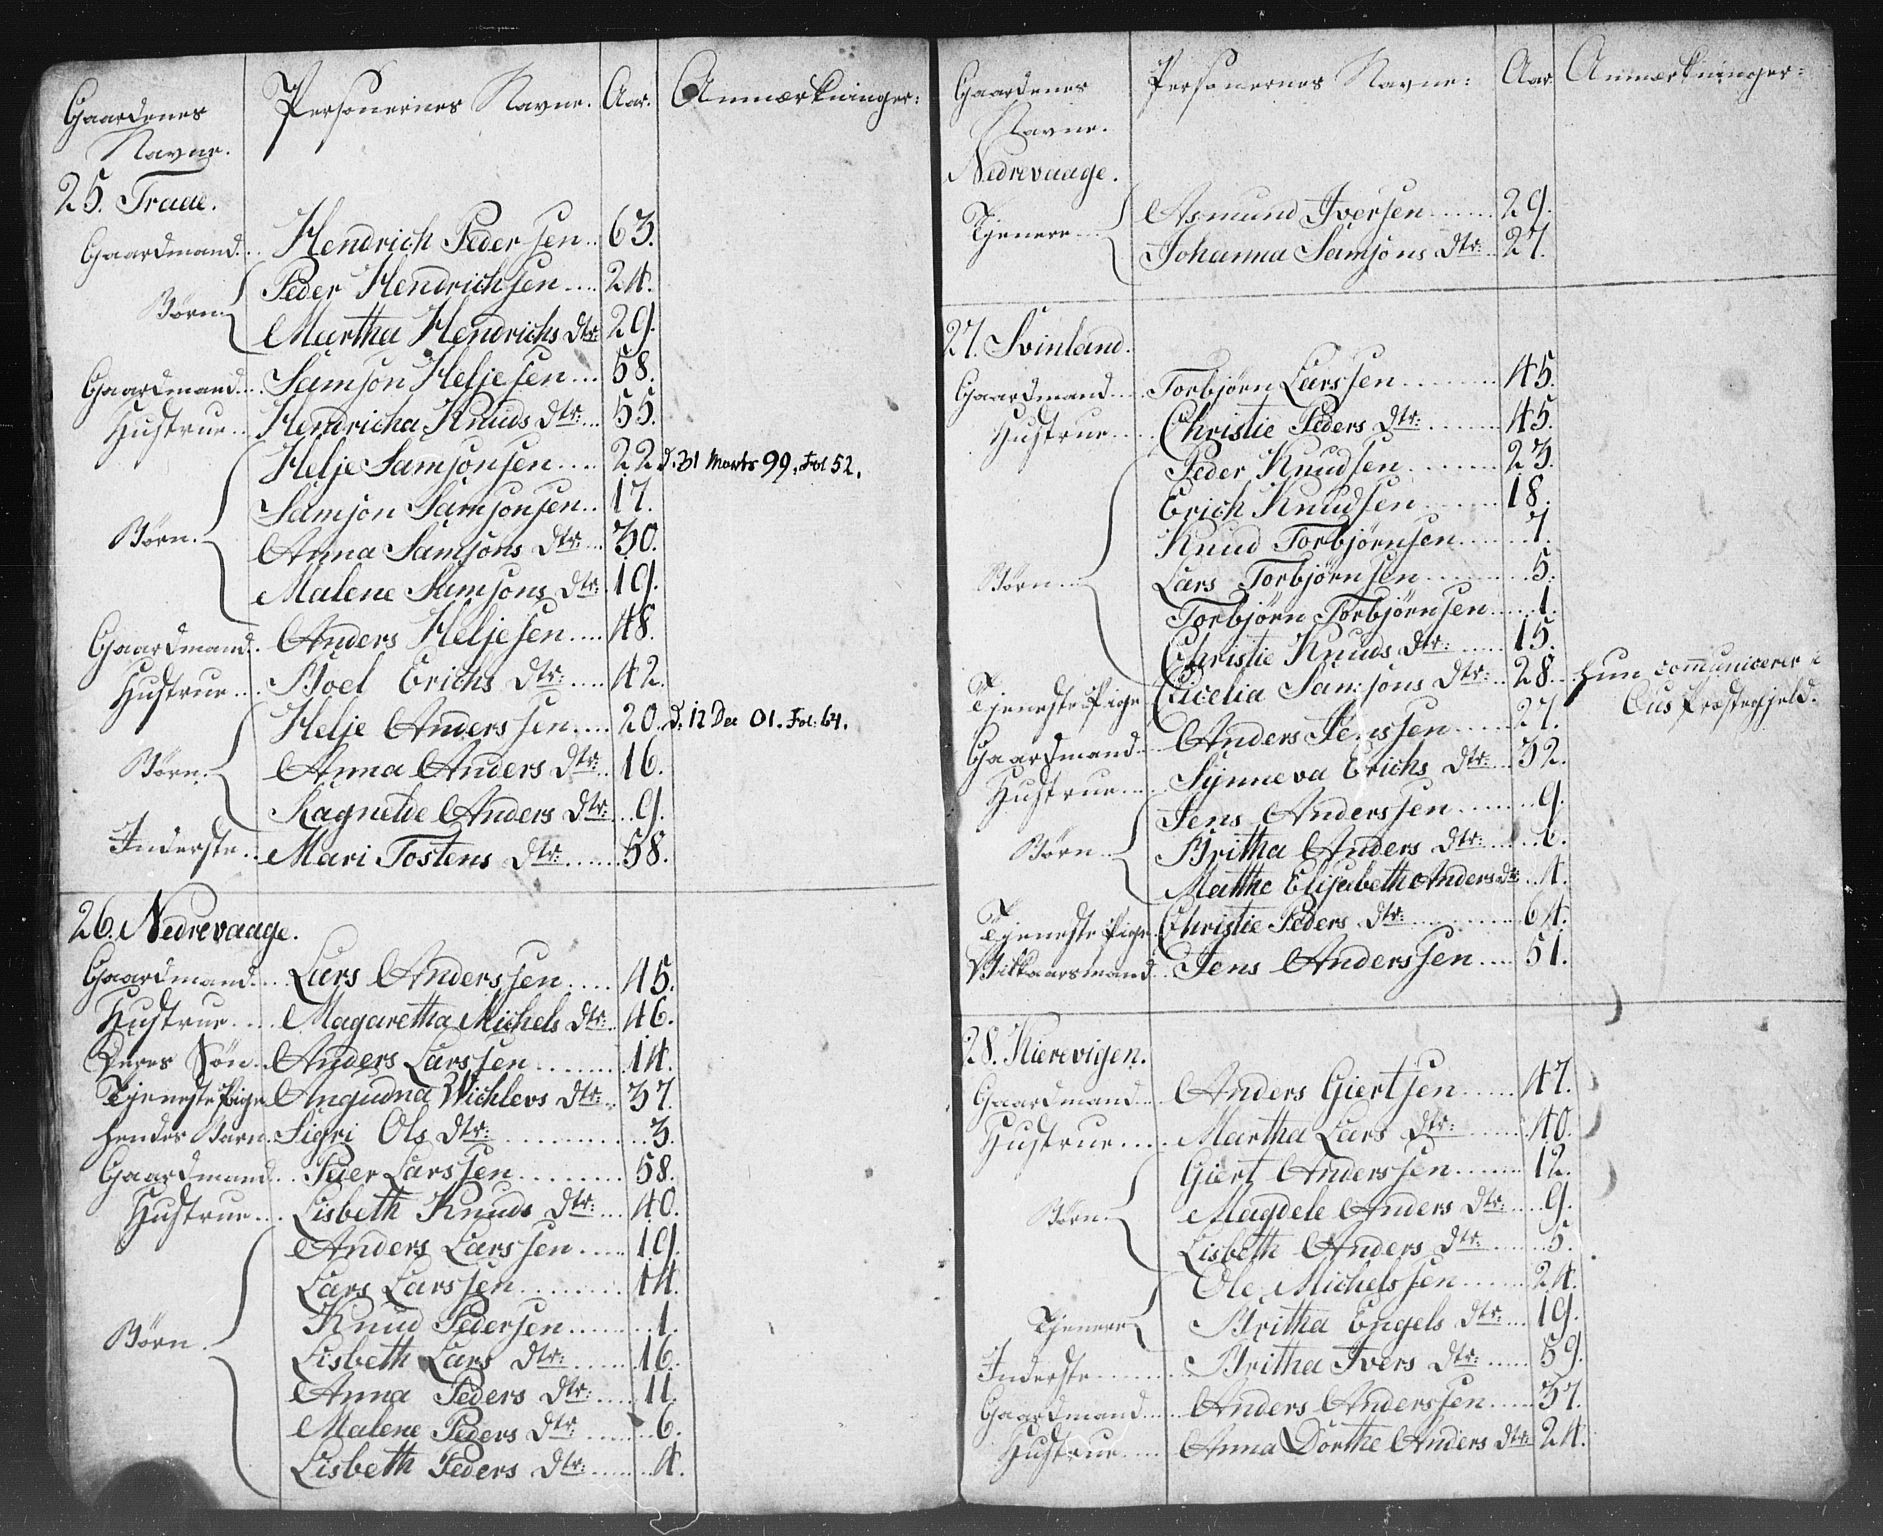 Gaardenes Navne. Personernes Navne. Aar. Anmærkninger:
25. Traae.
Gaardmand... Hendrich Pedersen.. 63.
Børn Peder Hendrichsen.... 24.
Martha Hendrichs Dtr: 29.
Gaardmand... Samson Heljesen... 58.
Hustrue.. Hendricha Knuds Dtr:... 55.
Helje Samsonsen..... 22. d. 31 Marts 99, Fol 52.
Samson Samsonsen.. 17.
Børn. Anna Samsons Dtr:... 30.
Malene Samsons Dtr: 19.
Gaardmand. Anders Heljesen.... 48.
Hustrue... Boel Erichs Dtr:.... 42.
Helje Anderssen.... 20. d. 12 Dec 01. Fol: 64.
Børn. Anna Anders Dtr:.. 16.
Ragnelde Anders Dtr:... 9.
Inderste... Mari Tostens Dtr:...... 58.
26. Nedrevaage.
Gaardmand.... Lars Anderssen..... 45.
Hustrue.... Magaretha Michels Dtr:.. 46.
Deres Søn.. Anders Larssen......... 14.
Tjeneste Pige Angudna Wichlevs Dtr:.. 37.
hendes Barn. Sigri Ols Dtr:............... 3.
Gaardmand... Peer Larssen.......... 58.
Hustrue.... Lisbeth Knuds Dtr:... 40.
Anders Larssen..... 19.
Lars Larssen......... 14.
Knud Pedersen......... 1.
Børn. Lisbeth Lars Dtr:....... 16.
Anna Peders Dtr:..... 11.
Malene Peders Dtr:....... 6.
Lisbeth Peders Dtr:........ 4.
Gaardenes Navne. Personernes Navne: Aar Anmærkninger:
Nedrevaage.
Tjenere... Asmund Iversen....... 29.
Johanna Samsons Dtr:.. 27.
27. Svinland.
Gaardmand..... Torbjørn Larssen.......... 45.
Hustrue..... Christie Peders Dtr:........ 45.
Peder Knudsen.......... 23.
Erich Knudsen......... 18.
Knud Torbjørnsen......... 7.
Børn... Lars Torbjørnsen............ 5.
Torbjørn Torbjørnsen...... 1.
Christie Knuds Dtr:...... 15.
Tjeneste Pige Cicelia Samsons Dtr:.. 28. hun communicerer i
Ous Præstegjeld.
Gaardmand... Anders Jenssen........ 27.
Hustrue...... Synneva Erichs Dtr:... 32.
Jens Anderssen......... 9.
Børn.. Britha Anders Dtr:....... 6.
Matthe Elisabeth Anders Dtr.. 4.
Tjeneste Pige. Christie Peders Dtr:............ 64.
Vilkaarsmand.. Jens Anderssen.... 51.
28. Kierevigen.
Gaardmand.... Anders Giertsen...... 47.
Hustrue...... Martha Lars Dtr:........ 40.
Giert Anderssen........ 12.
Børn. Magdele Anders Dtr:.... 9.
Lisbeth Anders Dtr:........ 5.
Ole Michelssen....... 24.
Tjenere Britha Engels Dtr:... 19.
Inderste......... Britha Ivers Dtr:...... 59.
Gaardmand...... Anders Anderssen..... 37.
Hustrue..... Anna Dorthe Anders Dtr: 24.